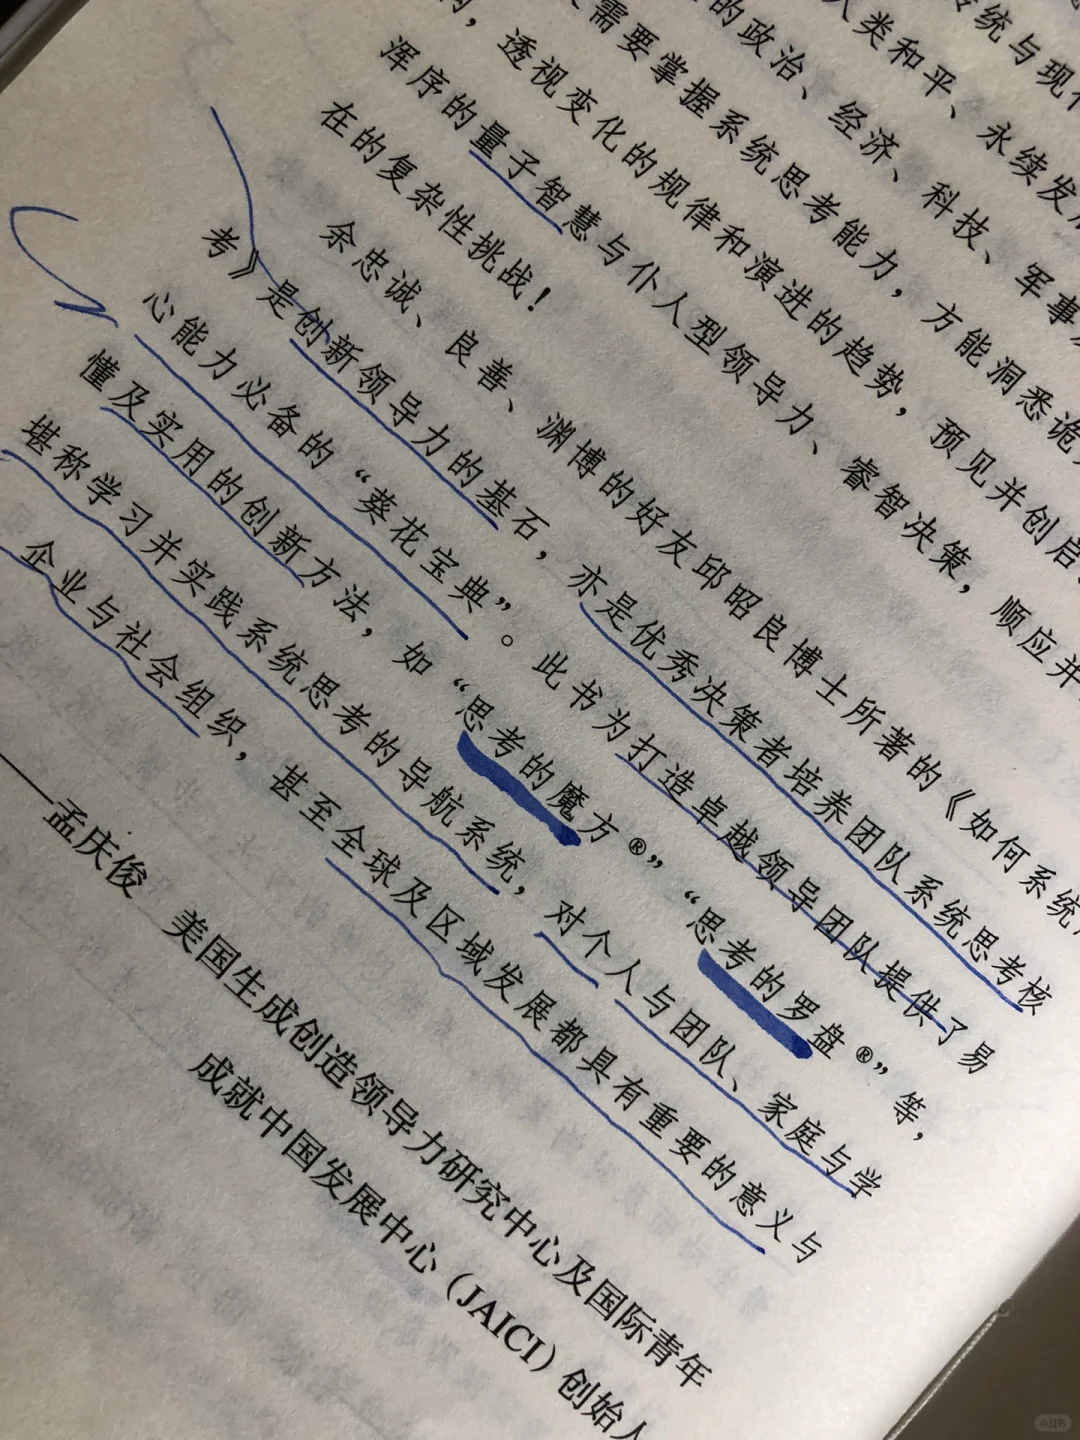 传统与现
人类和平、永续发
的政治、经济、科技、军事
需要掌握系统思考能力，方能洞悉诡
，透视变化的规律和演进的趋势，预见并创启
浑序的量子智慧与仆人型领导力、睿智决策，顺应并
在的复杂性挑战！
余忠诚、良善、渊博的好友邱昭良博士所著的《如何系统
考》是创新领导力的基石，亦是优秀决策者培养团队系统思考核
心能力必备的“葵花宝典”。此书为打造卓越领导团队提供了易
懂及实用的创新方法，如“思考的魔方®”“思考的罗盘®”等，
堪称学习并实践系统思考的导航系统，对个人与团队、家庭与学
企业与社会组织，甚至全球及区域发展都具有重要的意义与
——孟庆俊 美国生成创造领导力研究中心及国际青年
成就中国发展中心（JAICI）创始人
小红书